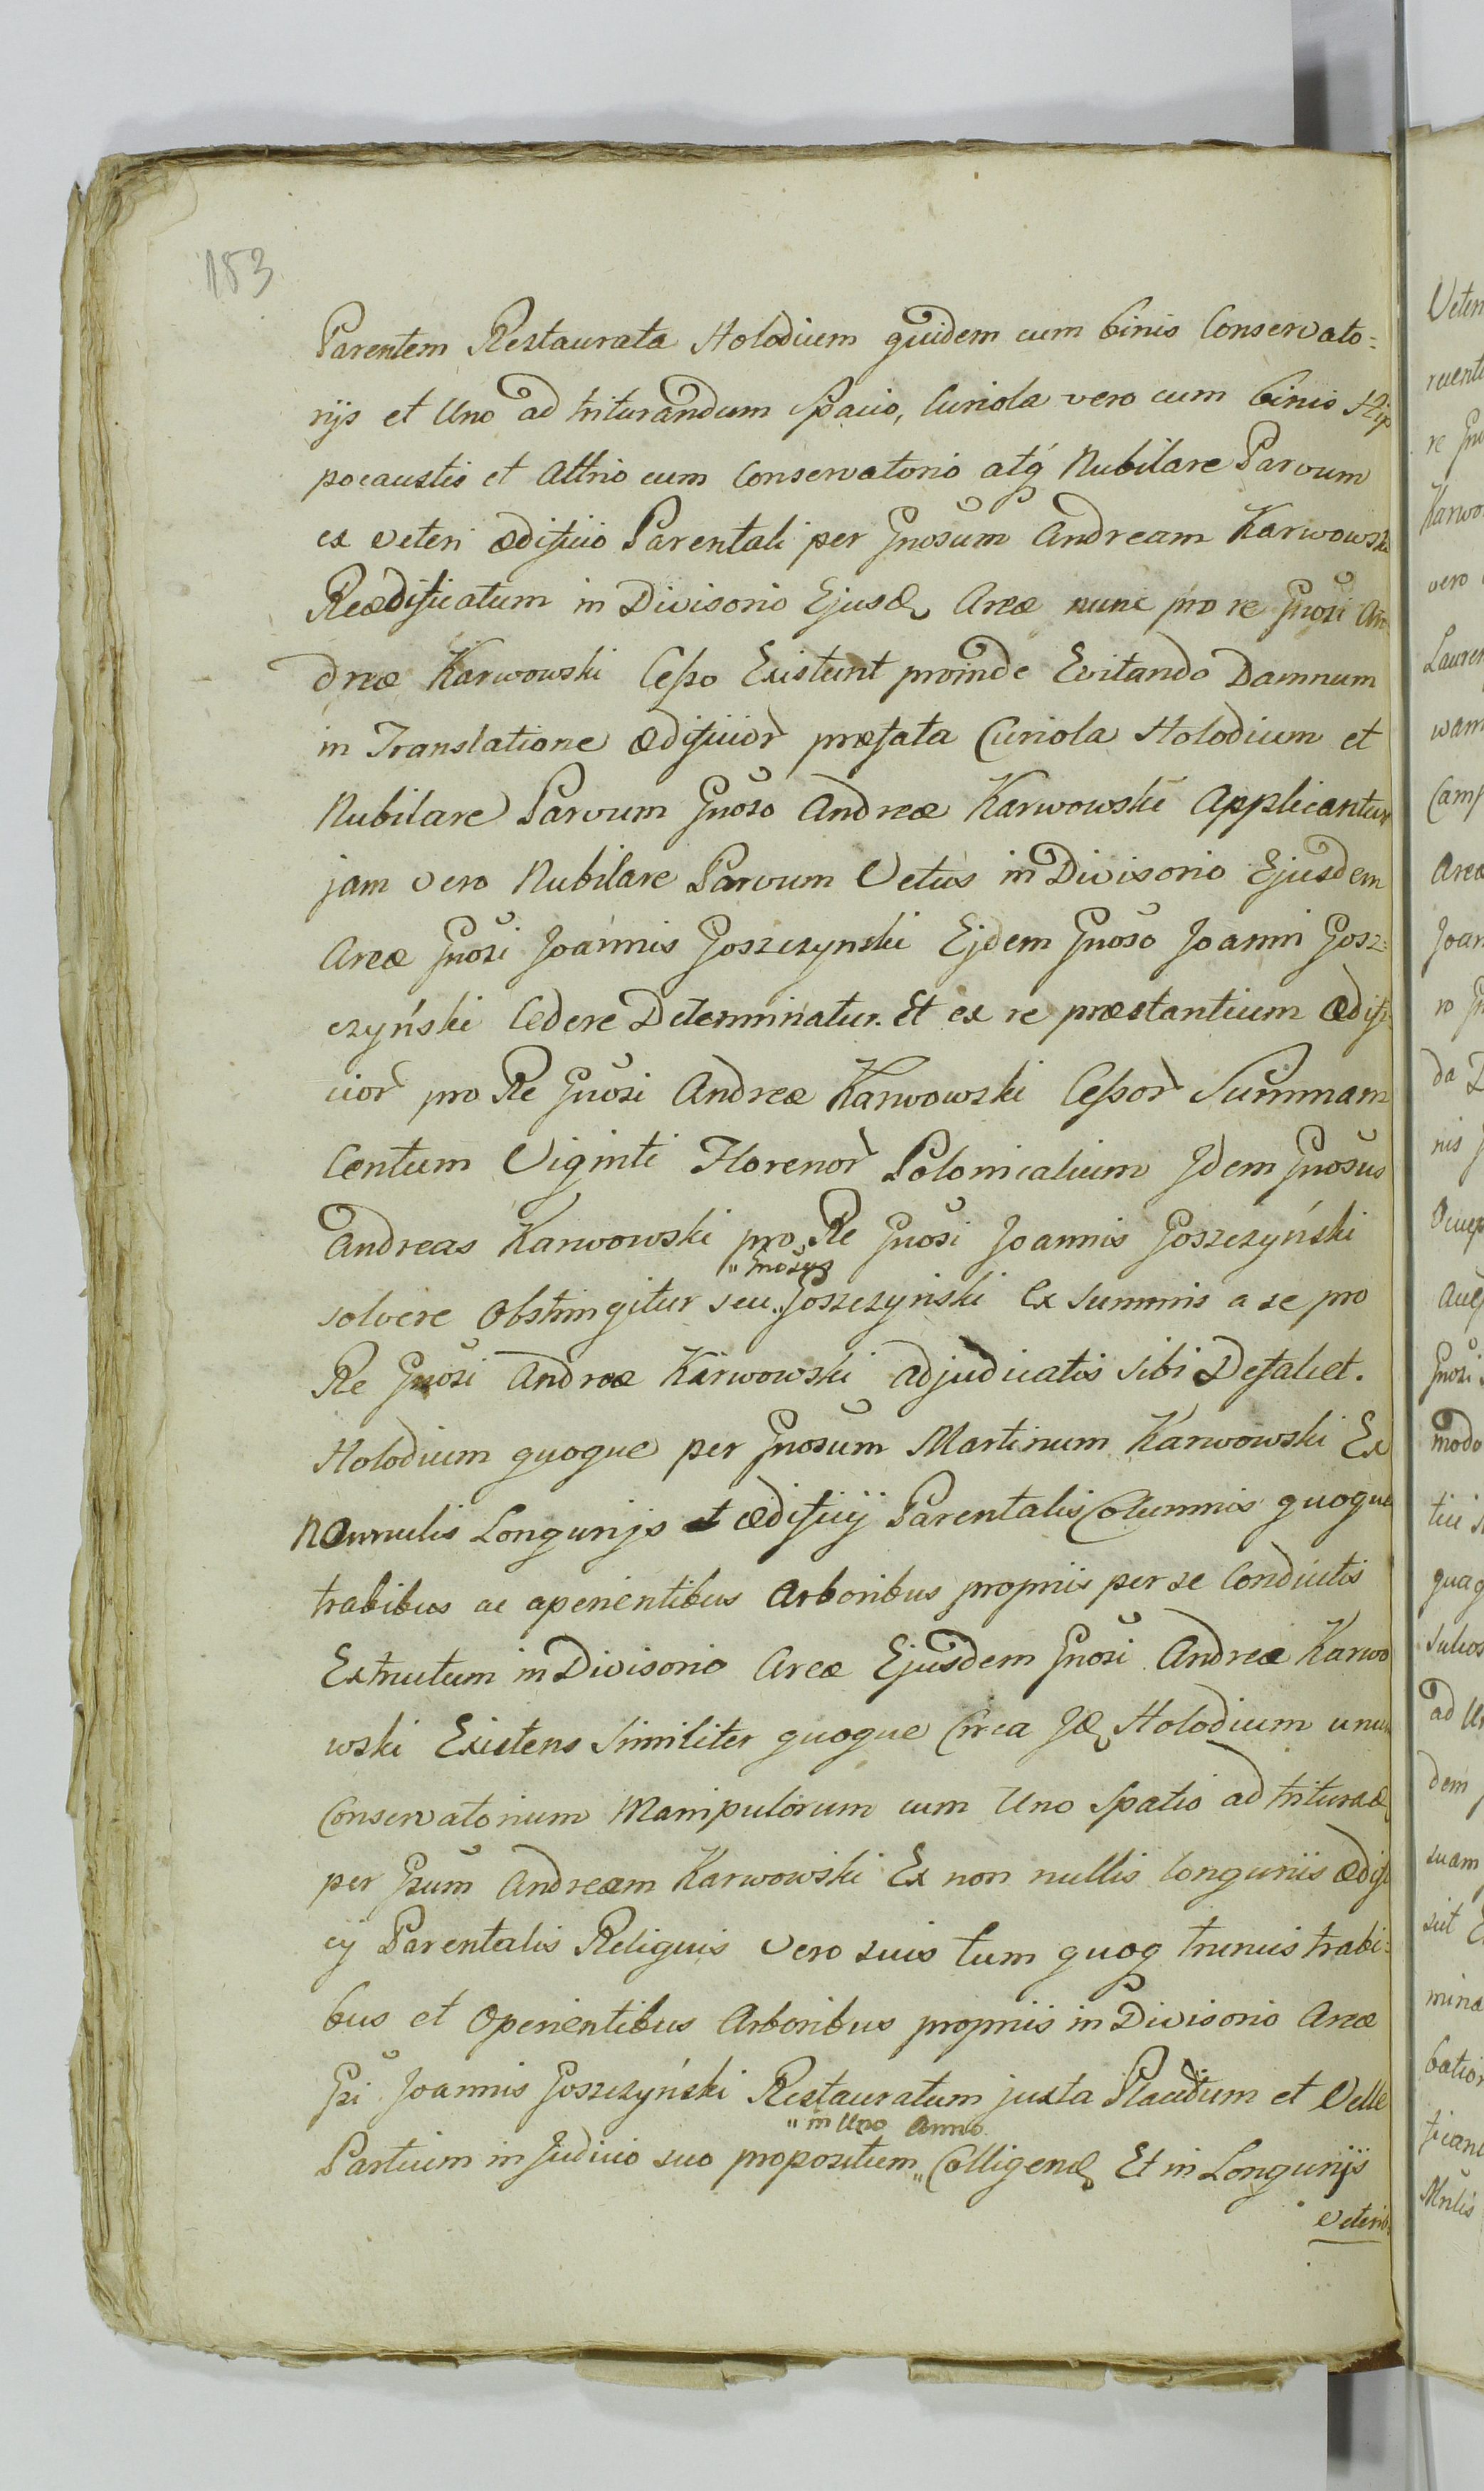 153
Parentem Restaurata Holodium quidem cum binis Conservato=
rijs et Uno ad triturandum Spacio, Curiola vero cum binis Hip
pocaustis et Attrio cum Conservatorio atq́ Nubilare Parvum
ex veteri ædificio Parentali per Gnosum Andream Karwowski
Reædificatum in Divisorio Ejusd Areæ nunc pro re Gnosi An
dreæ Karwowski Cesso Existunt proinde Evitando Damnum
in Translatione ædificior præfata Curiola Holodium et
Nubilare Parvum Gnoso Andreæ Karwowski Applicantur
jam vero Nubilare Parvum Vetus in Divisorio Ejusdem
Areæ Gnosi Joannis Goszczynski Ejdem Gnoso Joanni Gosz=
czyński Cedere Determinatur. Et ex re præstantium ædifi
cior pro Re Gnosi Andreæ Karwowski Cessor Summam
Centum Viginti Florenor Polonicalium Jdem Gnosus
Andreas Karwowski pro Re Gnosi Joannis Goszczyński
„Gnosus
solvere Obstringitur seu„ Goszczyński Ex summis a se pro
Re Gnosi Andreæ Karwowski adjudicatis sibi Defalcet.
Holodium quoque per Gnosum Martinum Karwowski Ex
nonnulis Longurijs et ædificij Parentalis Columnis quoque
trabibus ac aperientibus Arboribus propriis per se Conductis
Extructum in Divisorio Areæ Ejusdem Gnosi Andreæ Karwo
wski Existens Similiter quoque Circa Jd Holodium unum
Conservatorium Manipulorum cum Uno Spatio ad triturad
per Gsum Andream Karwowski Ex non nullis longuriis ædifi
cij Parentalis Reliquis vero suis tum quoq truncis trabi=
bus et Operientibus Arboribus propriis in Divisorio Areæ
Gsi Joannis Goszczyński Restauratum juxta Placitum et Velle
„in Uno Anno
Partium in Judicio suo propositum„ Colligend Et in Longurijs
Veterib